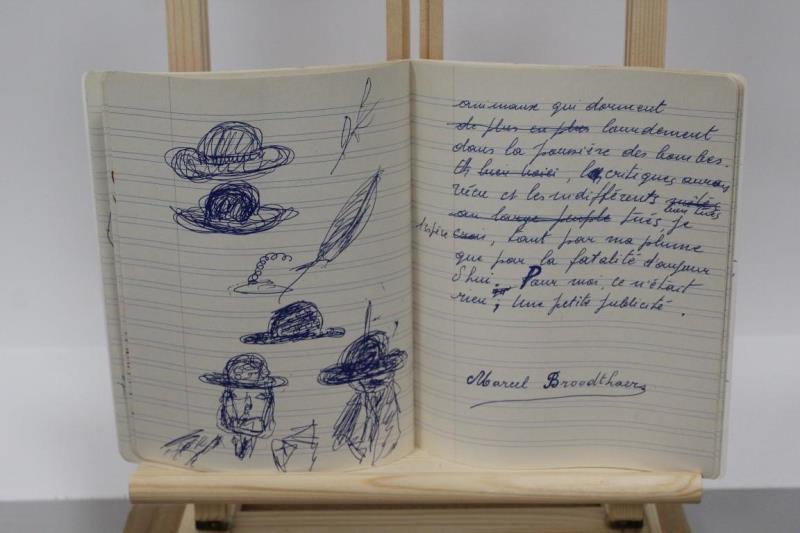 animaux qui dorment
de plus en plus lourdement
dans la poussière des bombes.
Et bien voici, les critiques auront
vécu et les indifférents mêlés
bien tués
au large peuple tués je
espère crois, tant par ma plume
que par la fatalité d'aujour
d'hui. Pour moi, ce n'était
rien, Une petite publicité.
Marcel Broodthaers